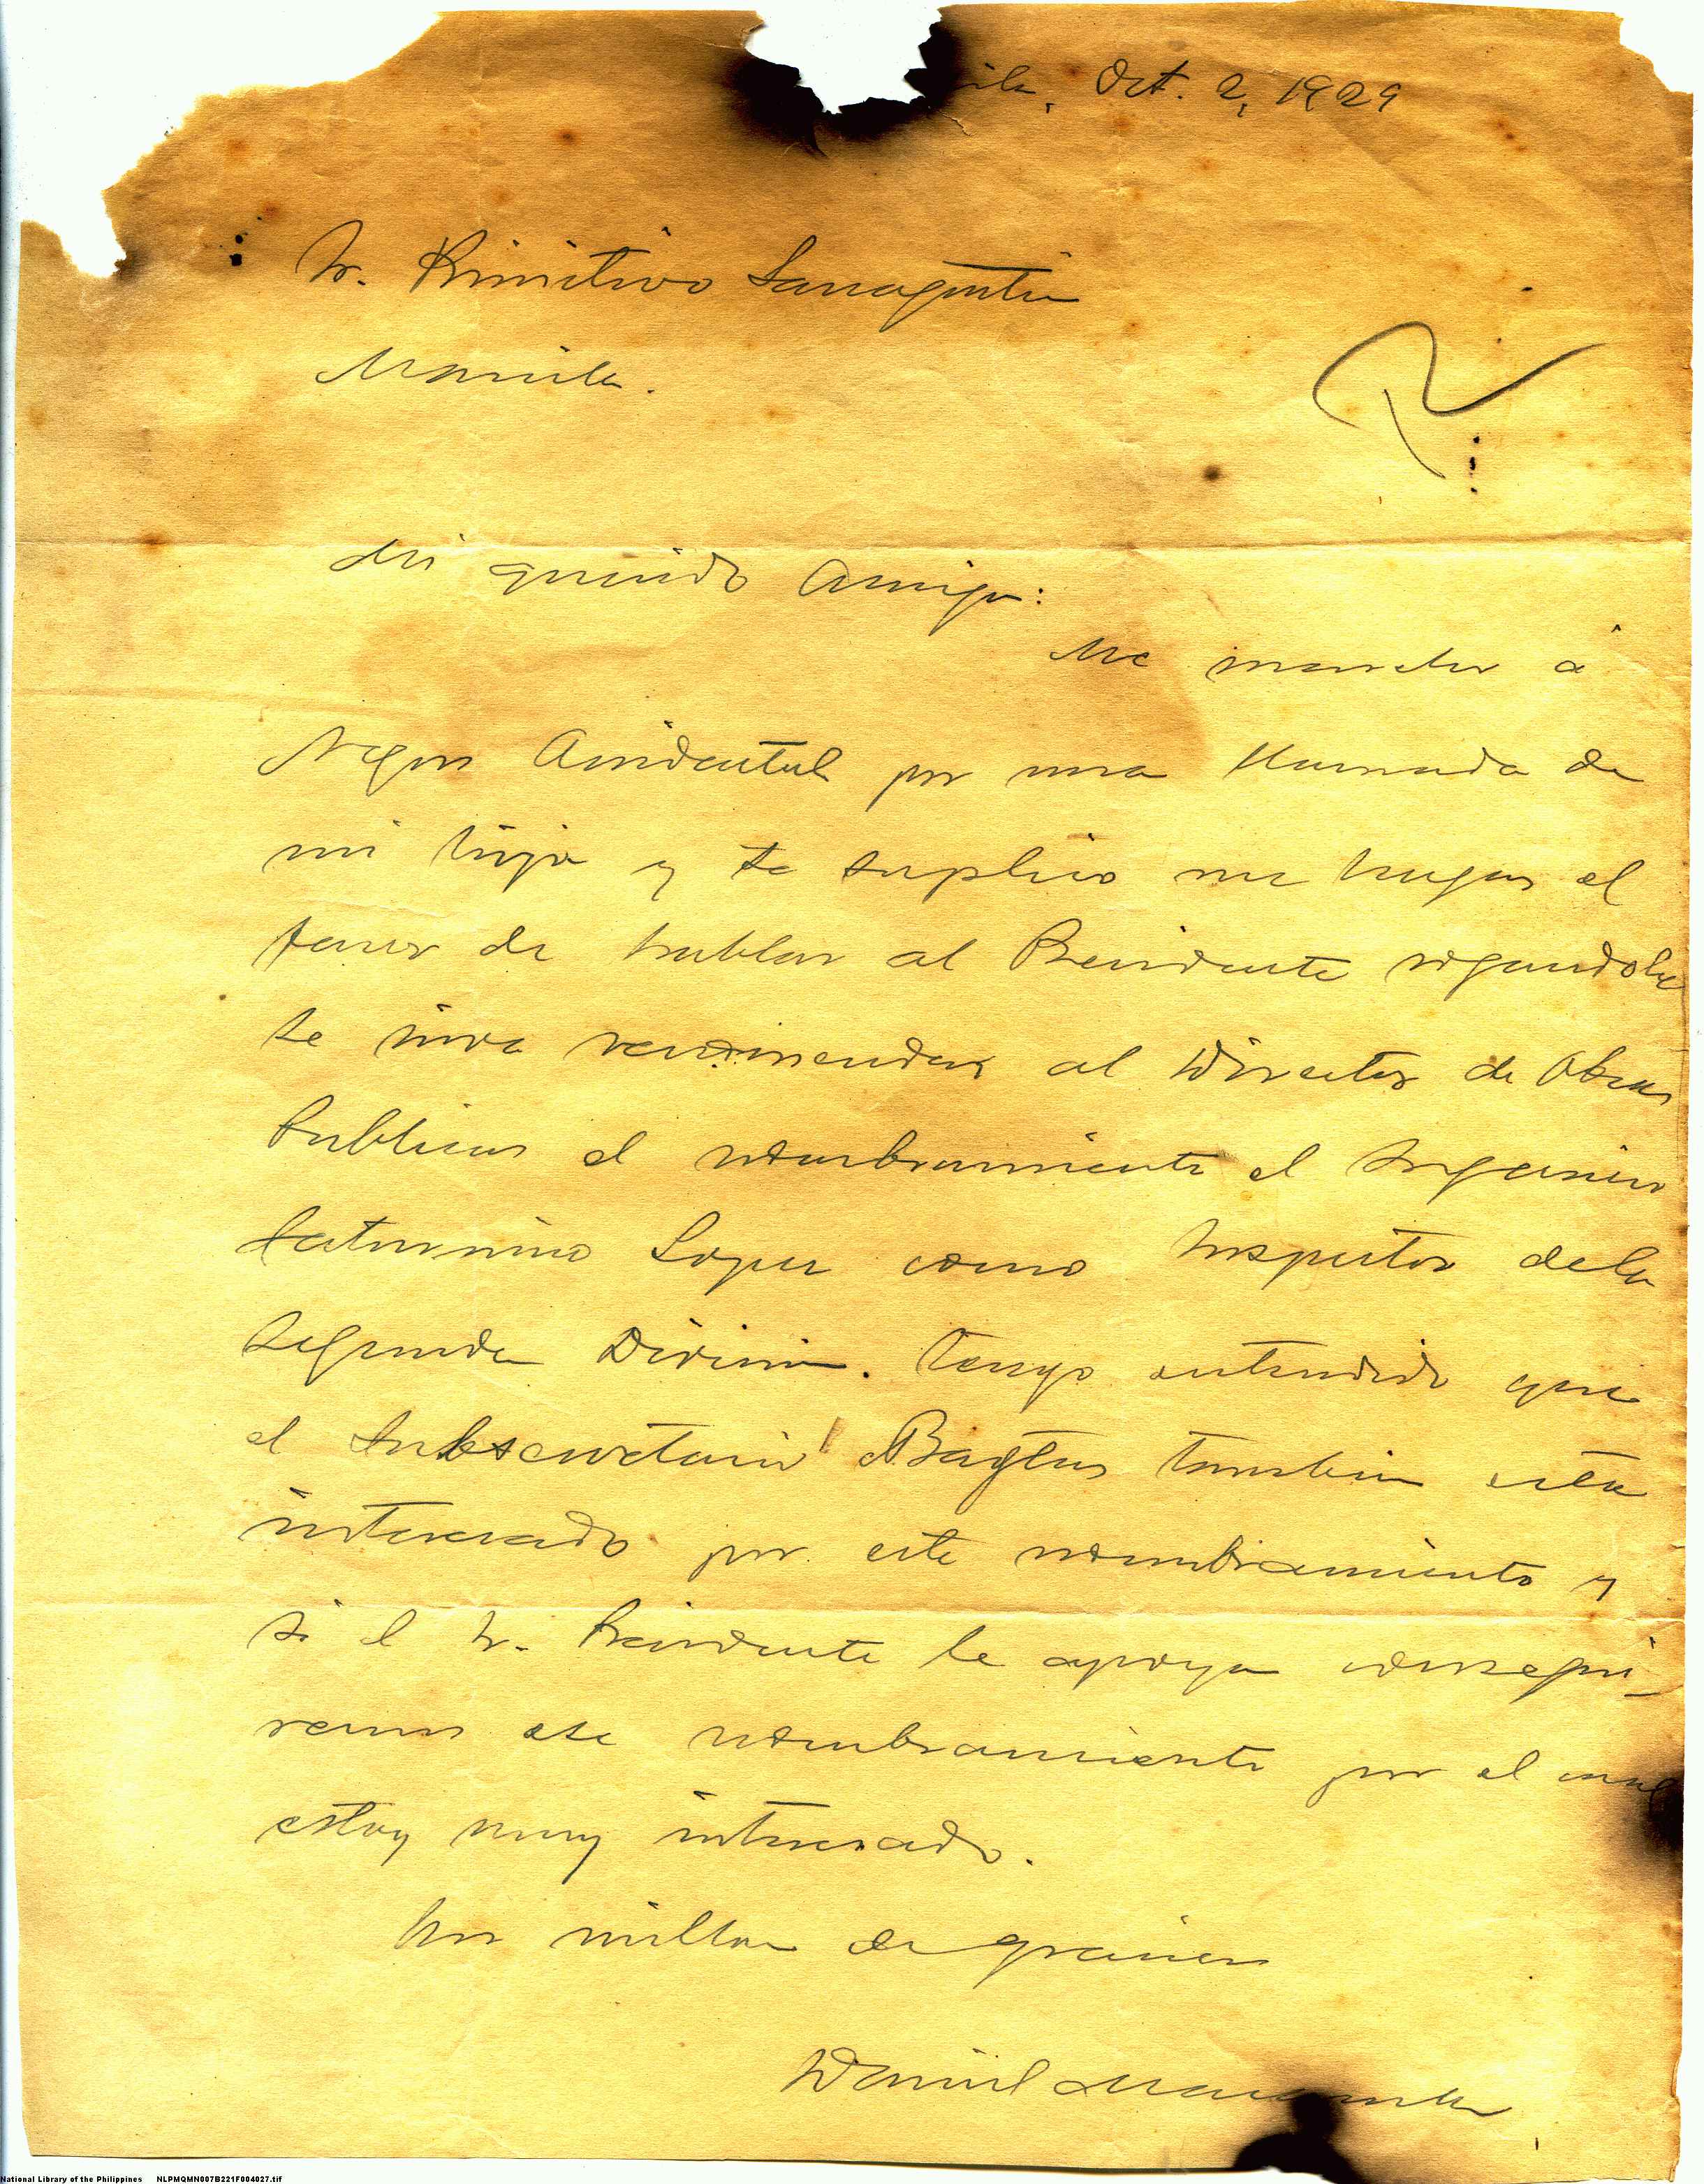 ila, Oct. 2, 1929
Sr. Primitivo Sanagustin
Manila.
Mi querido Amigo:
Me marcho á
Negros Occidental por una llamada de
mi hija y te suplico me hagas el
favor de hablar al Presidente rogandole
se sirva recomendar al Director de Obras
Publicas el nombramiento el Ingeniero
Saturnino Lopez como Inspector dela
Segunda Division. Tengo entendido que
el Subsecretario Bagtas tambien esta
interesado por este nombramiento y
si el Sr. Presidente le apoya consegui-
remos ese nombramiento por el cual
estoy muy interesado.
Un millon de gracias
Daniel
National Library of the Philippines NLPMQMN007B221F004027.tif